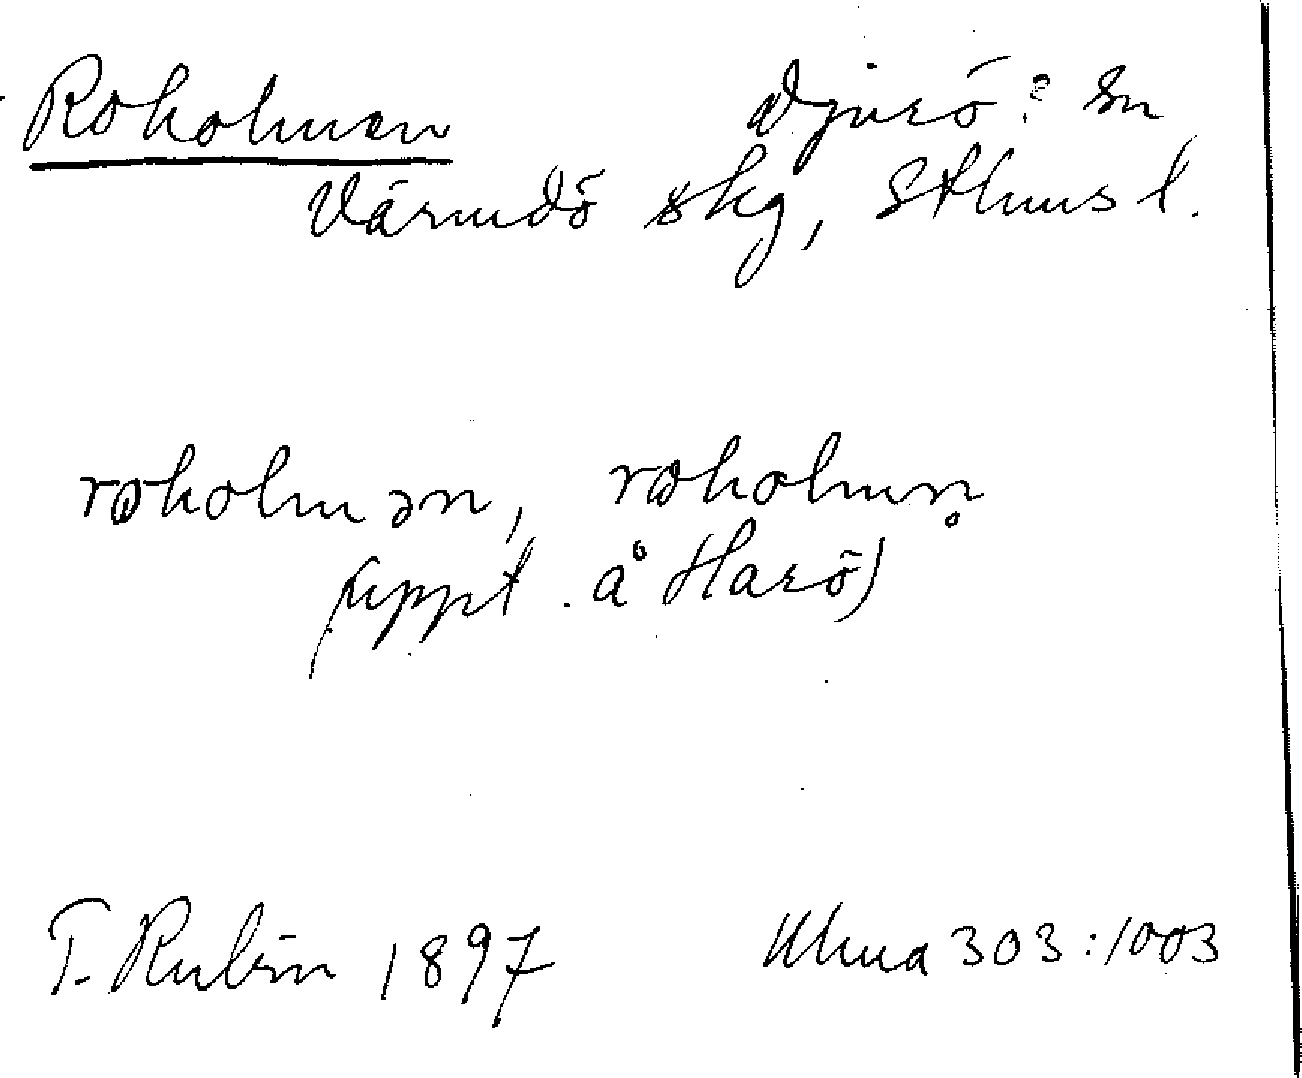 Rokolmen Djurö? sn
Värmdö skg, Sthms l.
rokolmən, rokolmn̥
(uppt. å Harö)
T. Rubin 1897 Ulma 303:1003